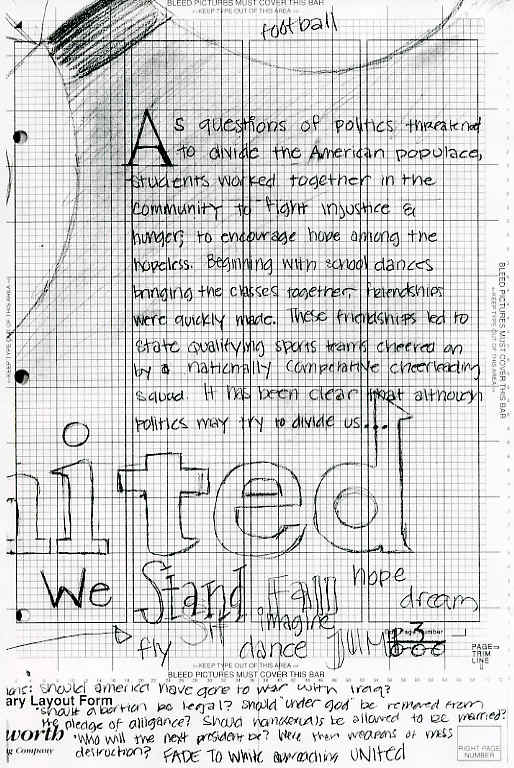 BLEED PICTURES MUST COVER THIS BAR
KEEP TYPE OUT OF THIS AREA
football
As questions of politics threatened
to divide the American populace,
students worked together in the
community to fight injustice &
hunger, to encourage hope among the
hopeless. Beginning with school dances
bringing the classes together, friendships
were quickly made. These friendships led to
state qualifying sports teams cheered on
by a nationally competative cheerleading
squad. It has been clear that although
politics may try to divide us...
KEEP TYPE OUT OF THIS AREA
BLEED PICTURES MUST COVER THIS BAR
KEEP TYPE OUT OF THIS AREA
nited
We Stand Fall hope
dream
Sit imagine
fly dance JUMP
Page Number
3
PAGE
TRIM
LINE
KEEP TYPE OUT OF THIS AREA
BLEED PICTURES MUST COVER THIS BAR
ons: Should america have gone to war with Iraq?
ary Layout Form
Should abortion be legal? Should 'under god' be removed from
the pledge of alligance? Should homosexuals be allowed to be married?
worth
Who will the next president be? Were their weapons of mass
g Company
destruction? FADE TO White approaching UNITED
RIGHT PAGE
NUMBER